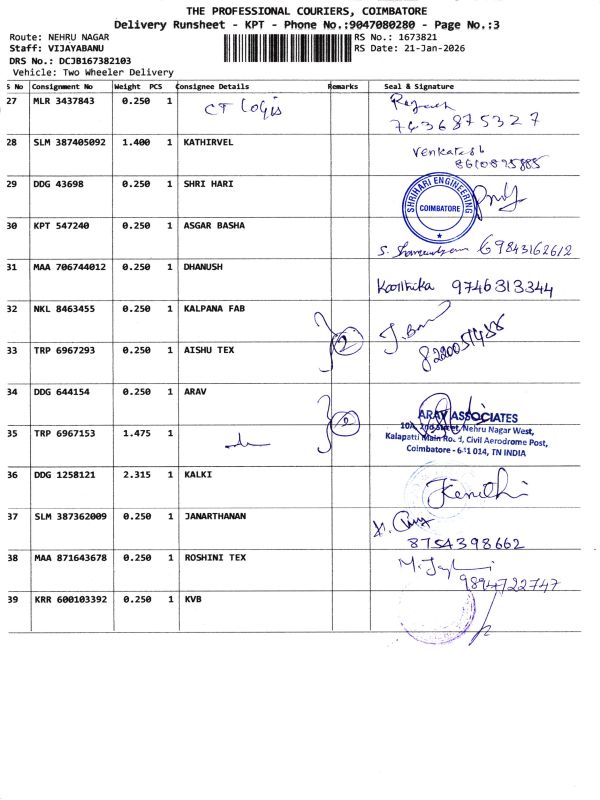 THE PROFESSIONAL COURIERS, COIMBATORE
Delivery Runsheet - KPT - Phone No.:9047080280 - Page No.:3
Route: NEHRU NAGAR RS No.: 1673821
Staff: VIJAYABANU RS Date: 21-Jan-2026
DRS No.: DCJB167382103
Vehicle: Two Wheeler Delivery
S No Consignment No Weight PCS Consignee Details Remarks Seal & Signature
27 MLR 3437843 0.250 1 CT Logis
7436875327
28 SLM 387405092 1.400 1 KATHIRVEL Venkatesh
29 DDG 43698 0.250 1 SHRI HARI SHRIHARI ENGINEERING COIMBATORE
30 KPT 547240 0.250 1 ASGAR BASHA
31 MAA 706744012 0.250 1 DHANUSH
Karthika 9746313344
32 NKL 8463455 0.250 1 KALPANA FAB
33 TRP 6967293 0.250 1 AISHU TEX 2
34 DDG 644154 0.250 1 ARAV
ARAV ASSOCIATES
10A, 2nd Street, Nehru Nagar West,
35 TRP 6967153 1.475 1
Kalapatti Main Road, Civil Aerodrome Post,
Coimbatore - 641 014, TN INDIA
36 DDG 1258121 2.315 1 KALKI
37 SLM 387362009 0.250 1 JANARTHANAN
8754398662
38 MAA 871643678 0.250 1 ROSHINI TEX
9894722747
39 KRR 600103392 0.250 1 KVB